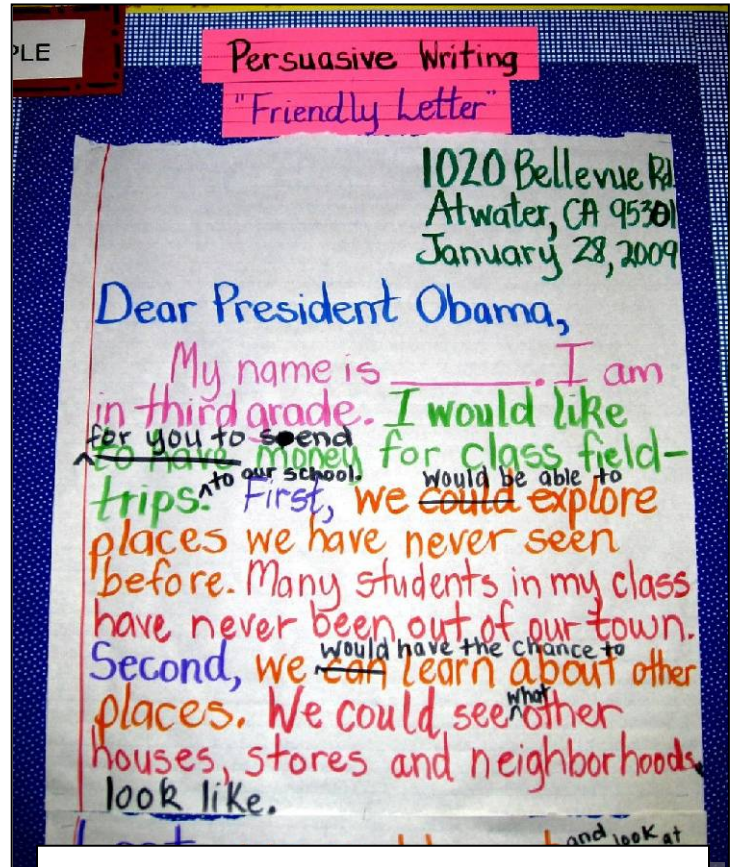 PLE
Persuasive Writing
"Friendly Letter"
1020 Bellevue Rd.
Atwater, CA 95301
January 28, 2009
Dear President Obama,
My name is ________. I am
in third grade. I would like
for you to send
to have money for class field-
trips. ^to our school. First, we could would be able to explore
places we have never seen
before. Many students in my class
have never been out of our town.
would have the chance to
Second, we can learn about other
places. We could see ^what other
houses, stores and neighborhoods
look like.
and look at